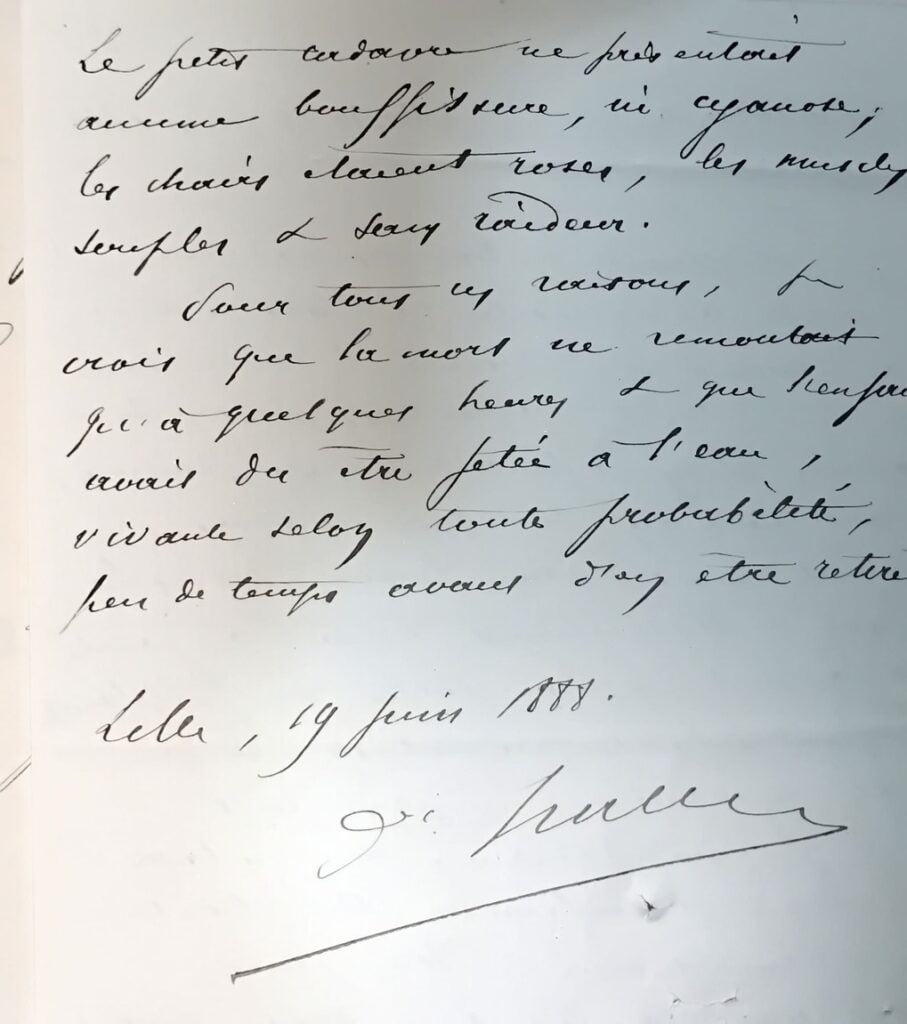 Le petit cadavre ne présentait
aucune bouffissure, ni cyanose,
les chairs étaient roses, les muscles
souples & sans raideur.
Pour tous ces raisons, je
crois que la mort ne remontait
qu'à quelques heures & que l'enfan
avait du être jetée à l'eau,
vivante selon toute probabilité,
peu de temps avant d'en être retiré
Lille, 19 juin 1888.
Dr